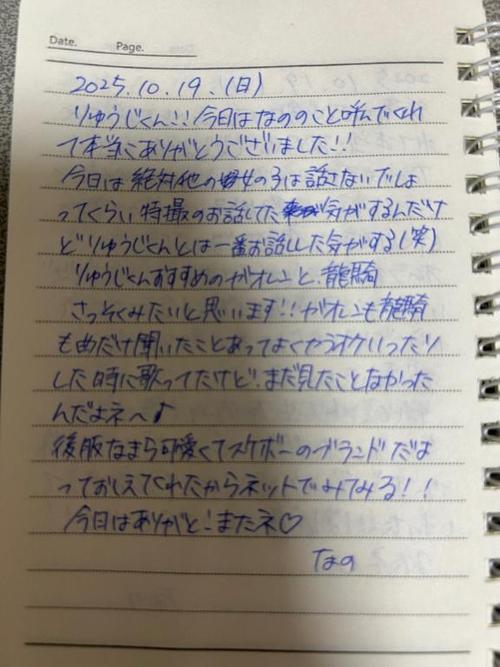 Date. Page.
2025.10.19.(日)
りゅうじくん!!今日はなののこと呼んでくれ
て本当にありがとうございました!!
今日は絶対他の女の子は話さないでしょ
ってくらい特撮のお話してた気がするんだけ
どりゅうじくんとは一番お話しした気がする(笑)
りゅうじくんおすすめのガオレンと、龍騎
さっそくみたいと思います!!ガオレンも龍騎
も曲だけ聞いたことあってよくカラオケいったり
した時に歌ってたけど、まだ見たことなかった
んだよネ〜♪
後服なまら可愛くてスケボーのブランドだよ
っておしえてくれたからネットでみてみる!!
今日はありがと!またネ♡
なの